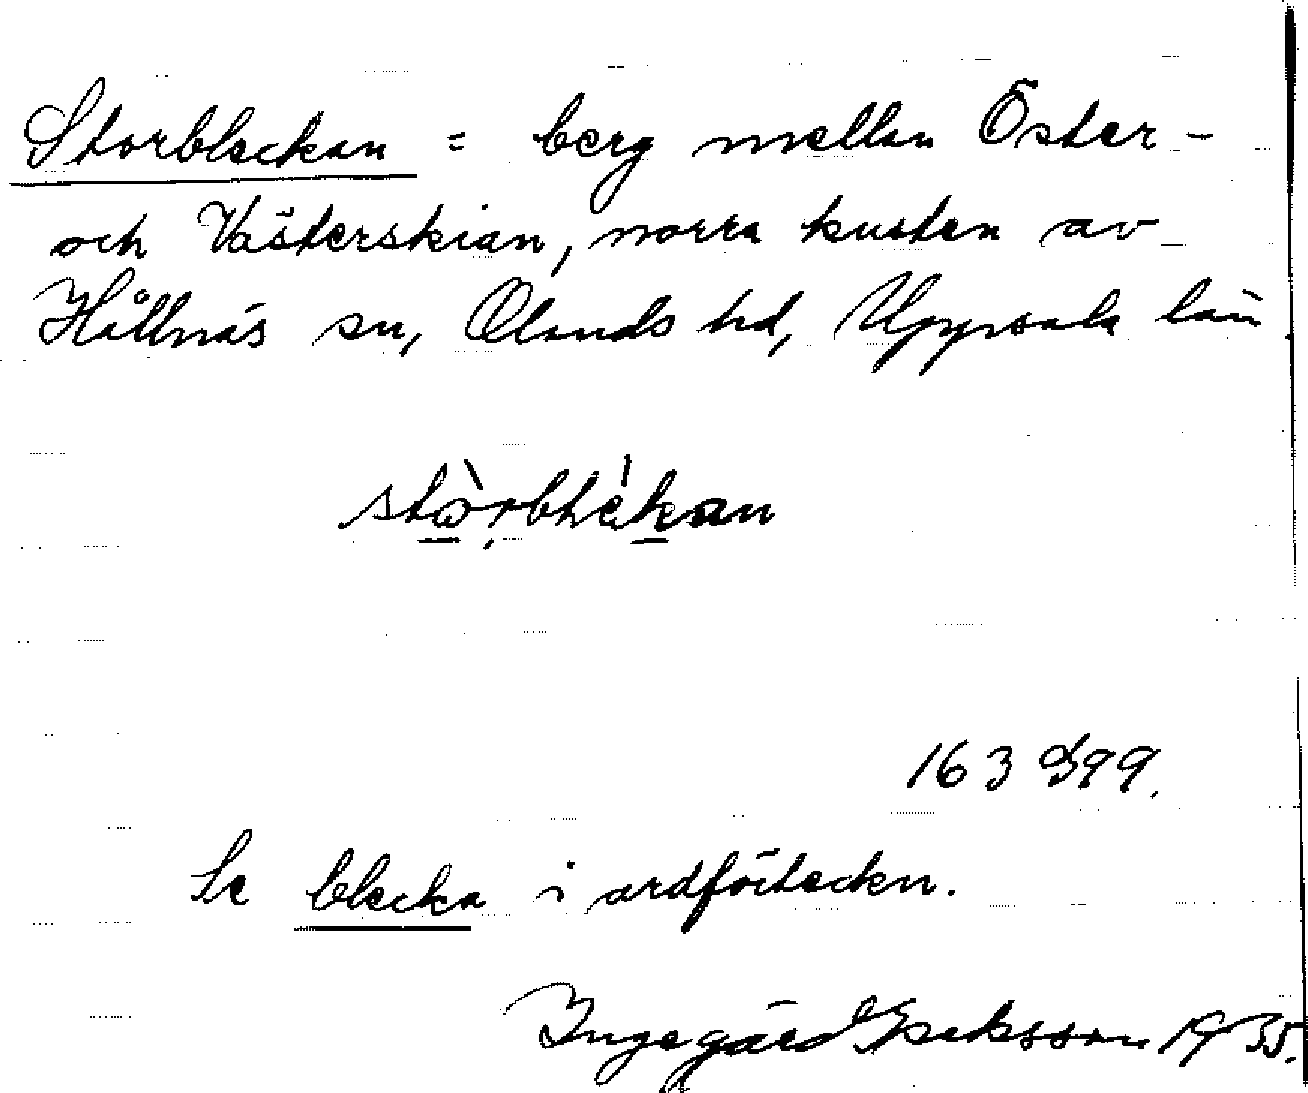 Storbleckan = berg mellan Öster-
och Västerskian, norra kusten av
Hållnäs sn, Olands hd, Uppsala län
163 D99.
Se blecka i ordförteckn.
Ingegärd Eriksson 1935.